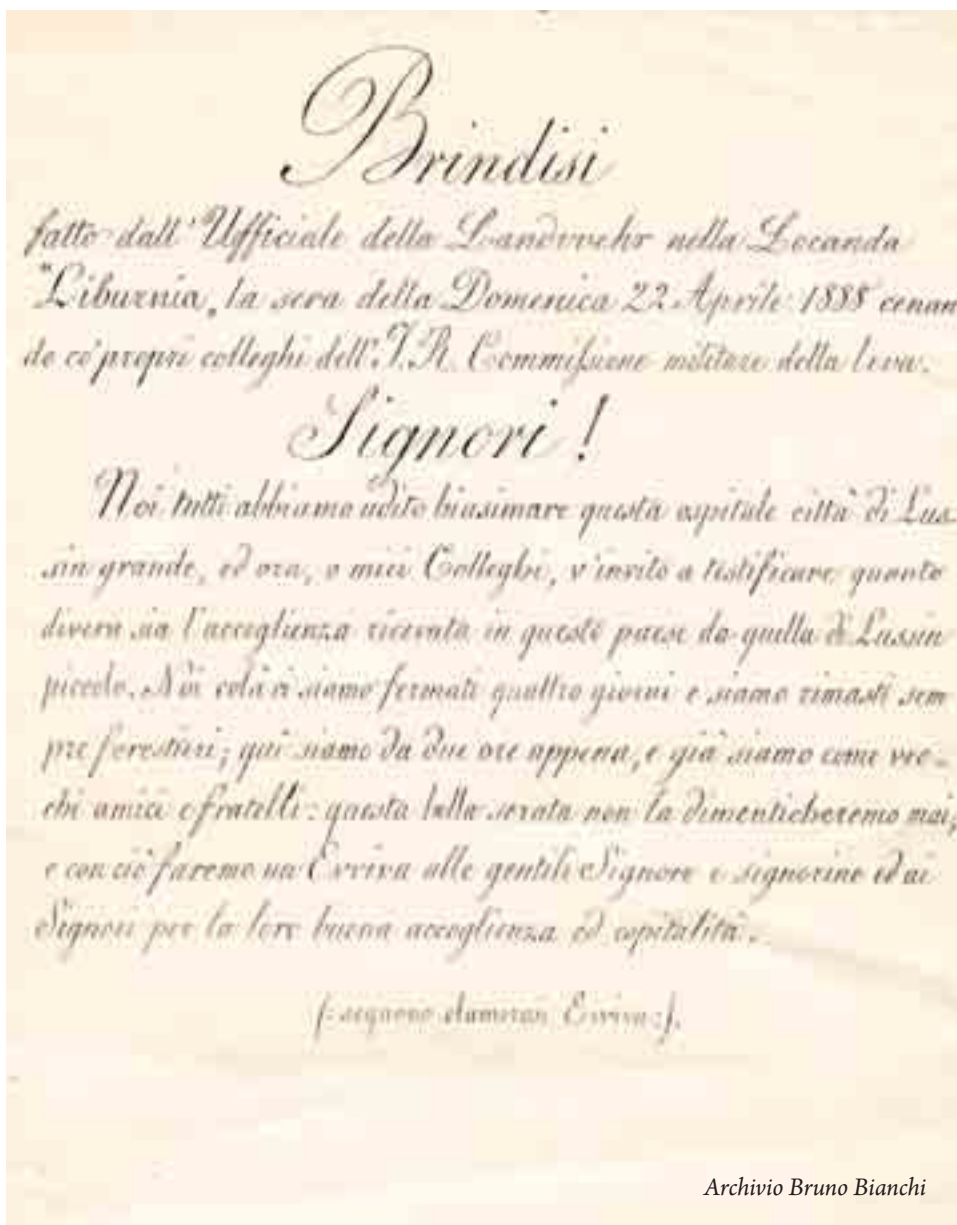 Brindisi
fatto dall' Ufficiale della Landwehr nella Locanda
"Liburnia„ la sera della Domenica 22 Aprile 1888 cenan
do co' proprî colleghi dell' I. R. Commissione militare della leva.
Signori !
Noi tutti abbiamo udito biasimare questa ospitale città di Lus
sin grande, ed ora, o miei Colleghi, v'invito a testificare quanto
diversa sia l'accoglienza ricevuta in questo paese da quella di Lussin
piccolo. Noi colà ci siamo fermati quattro giorni e siamo rimasti sem
pre forestieri; qui siamo da due ore appena, e già siamo come vec-
chi amici e fratelli: questa bella serata non la dimenticheremo mai,
e con ciò faremo un Evviva alle gentili Signore e signorine ed ai
Signori per la loro buona accoglienza ed ospitalità.
/: seguono clamorosi Evviva :/.
Archivio Bruno Bianchi